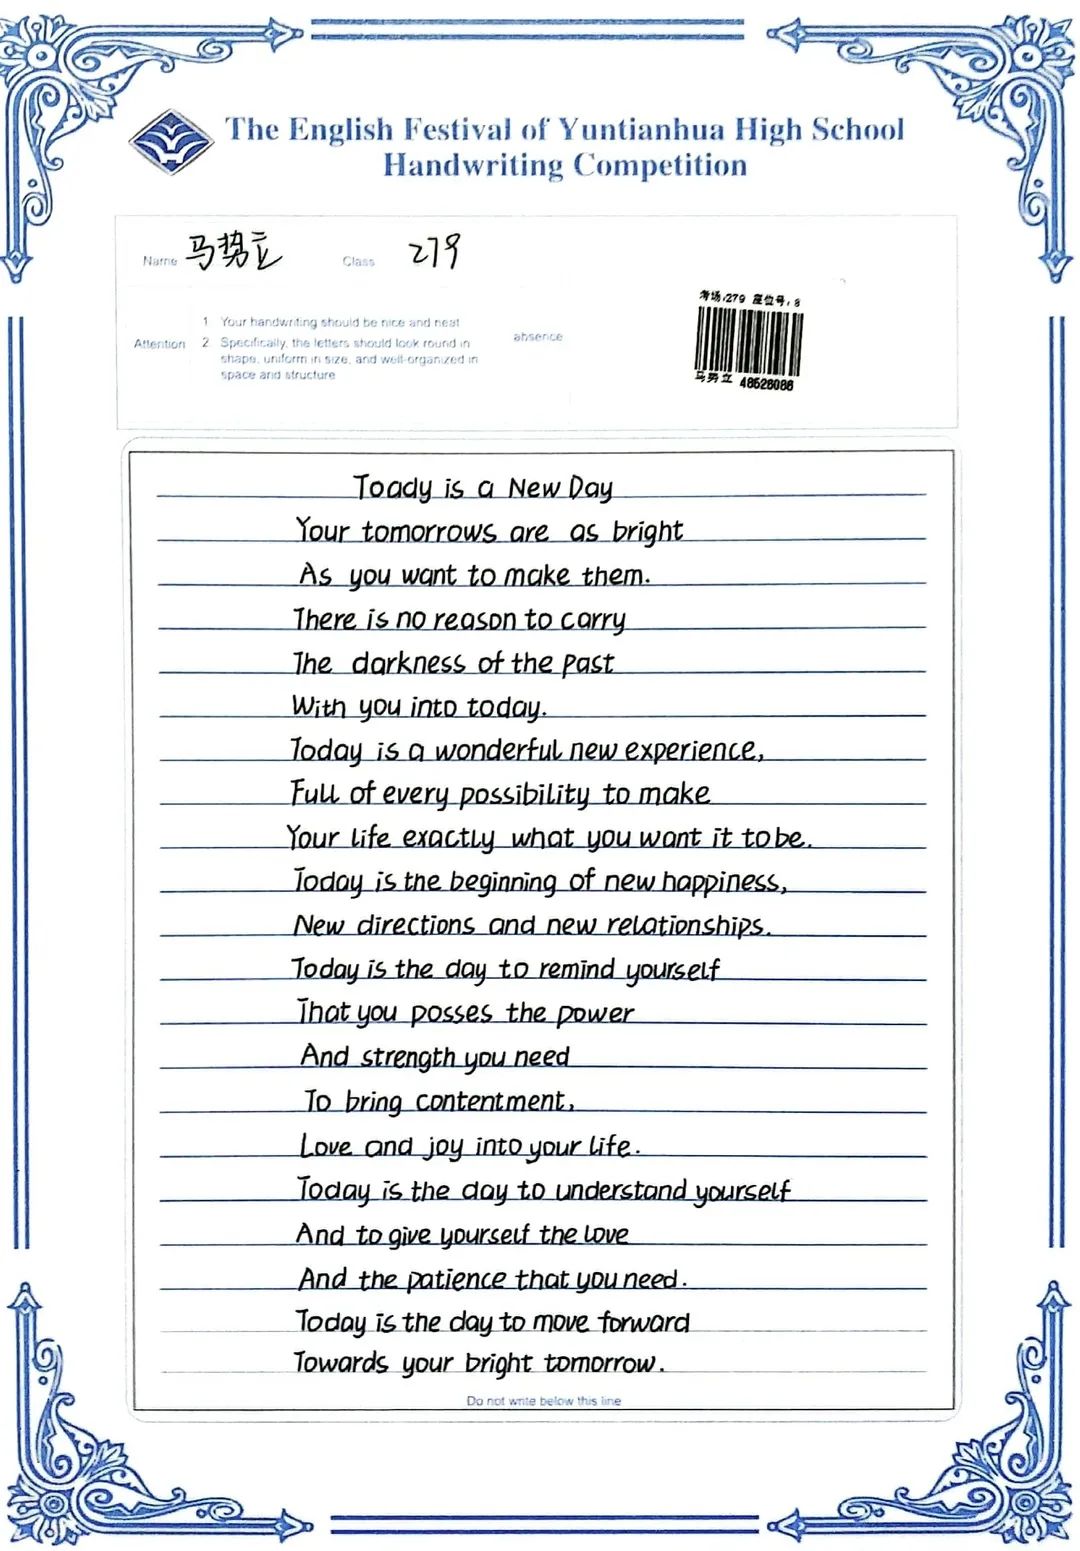 The English Festival of Yuntianhua High School
Handwriting Competition
Name 马势立 Class 279
考场:279 座位号:8
Attention
1 Your handwriting should be nice and neat
2 Specifically, the letters should look round in
shape, uniform in size, and well-organized in
space and structure
absence
马势立 48526086
Toady is a New Day
Your tomorrows are as bright
As you want to make them.
There is no reason to carry
The darkness of the past
With you into today.
Today is a wonderful new experience,
Full of every possibility to make
Your life exactly what you want it to be.
Today is the beginning of new happiness,
New directions and new relationships.
Today is the day to remind yourself
That you posses the power
And strength you need
To bring contentment,
Love and joy into your life.
Today is the day to understand yourself
And to give yourself the love
And the patience that you need.
Today is the day to move forward
Towards your bright tomorrow.
Do not write below this line